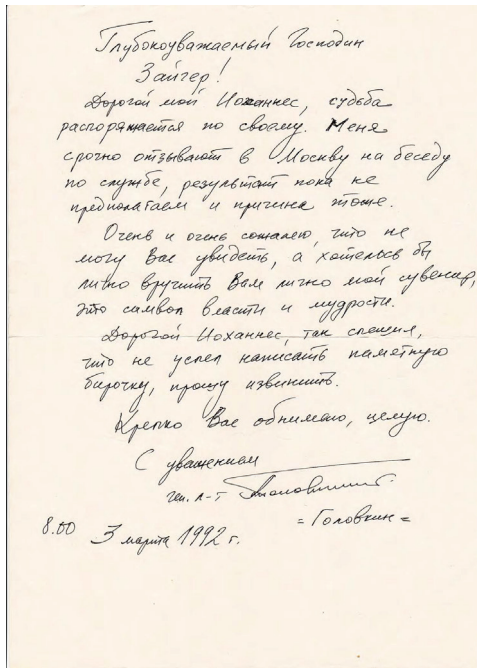 Глубокоуважаемый Господин
Зайгер!
Дорогой мой Иоханнес, судьба
распоряжается по своему. Меня
срочно отзывают в Москву на беседу
по службе, результат пока не
предполагаем и причина тоже.
Очень и очень сожалею, что не
могу Вас увидеть, а хотелось бы
лично вручить Вам лично мой сувенир,
это символ власти и мудрости.
Дорогой Иоханнес, так спешил,
что не успел написать памятную
бирочку, прошу извинить.
Крепко Вас обнимаю, целую.
С уважением
ген. л-т
=Головкин=
8.00 3 марта 1992 г.